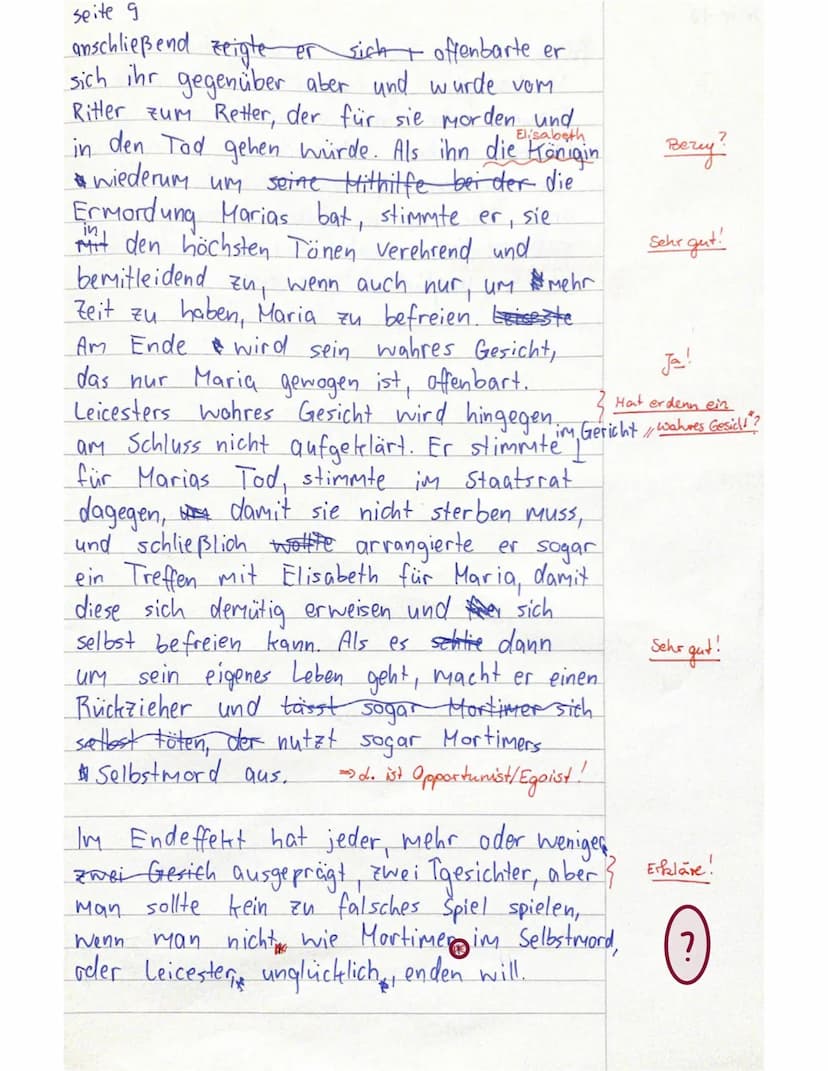 seite 9
anschließend zeigte er sich offenbarte er
sich ihr gegenüber aber und wurde vom
Ritter zum Retter, der für sie morden und
Elisabeth
in den Tod gehen würde. Als ihn die Königin
Bezug?
wiederum um seine Mithilfe bei der die
Ermordung Marias bat, stimmte er, sie
Sehr gut!
in
Mit den höchsten Tönen verehrend und
bemitleidend zu, wenn auch nur, um mehr
Zeit zu haben, Maria zu befreien.
Am Ende wird sein wahres Gesicht,
Ja!
das nur Maria gewogen ist, offenbart.
Leicesters wahres Gesicht wird hingegen
Hat er denn ein
„wahres Gesicht"?
im Gericht
am Schluss nicht aufgeklärt. Er stimmte
für Marias Tod, stimmte im Staatsrat
dagegen, um damit sie nicht sterben muss,
und schließlich wollte arrangierte er sogar
ein Treffen mit Elisabeth für Maria, damit
diese sich demütig erweisen und sich
selbst befreien kann. Als es schlie dann
Sehr gut!
um sein eigenes Leben geht, macht er einen
Rückzieher und lässt sogar Mortimer sich
selbst töten, der nutzt sogar Mortimers
Selbstmord aus. => d. ist Opportunist/Egoist!
Im Endeffekt hat jeder, mehr oder weniger
zwei Gesich ausgeprägt, zwei Tgesichter, aber
Erkläre!
man sollte kein zu falsches Spiel spielen,
wenn man nicht, wie Mortimer im Selbstmord,
?
oder Leicester, unglücklich, enden will.